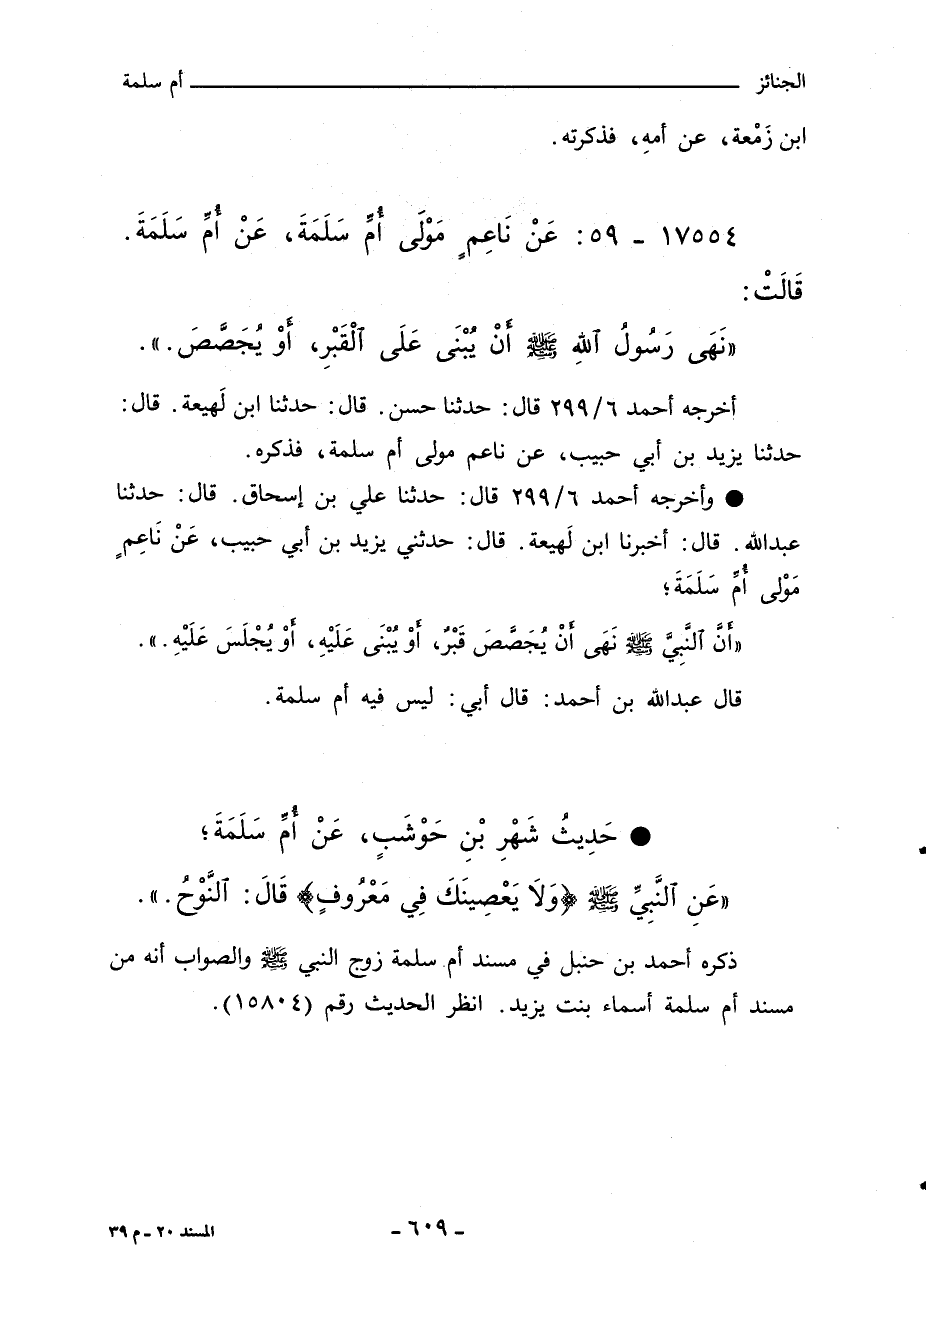 الجنائز ـــــــــ أم سلمة
ابن زَمْعة، عن أمه، فذكرته.
١٧٥٥٤ - ٥٩: عَنْ نَاعِمٍ مَوْلَى أُمِّ سَلَمَةَ، عَنْ أُمِّ سَلَمَةَ.
قَالَتْ:
«نَهَى رَسُولُ ٱللهِ ﷺ أَنْ يُبْنَى عَلَى ٱلْقَبْرِ، أَوْ يُجَصَّصَ.».
أخرجه أحمد ٢٩٩/٦ قال: حدثنا حسن. قال: حدثنا ابن لَهيعة. قال:
حدثنا يزيد بن أبي حبيب، عن ناعم مولى أم سلمة، فذكره.
● وأخرجه أحمد ٢٩٩/٦ قال: حدثنا علي بن إسحاق. قال: حدثنا
عبدالله. قال: أخبرنا ابن لَهيعة. قال: حدثني يزيد بن أبي حبيب، عَنْ نَاعِمٍ
مَوْلى أُمِّ سَلَمَةَ؛
«أَنَّ ٱلنَّبِيَّ ﷺ نَهَى أَنْ يُجَصَّصَ قَبْرٌ، أَوْ يُبْنَى عَلَيْهِ، أَوْ يُجْلَسَ عَلَيْهِ.».
قال عبدالله بن أحمد: قال أبي: ليس فيه أم سلمة.
● حَدِيثُ شَهْرِ بْنِ حَوْشَبٍ، عَنْ أُمِّ سَلَمَةَ؛
«عَنِ ٱلنَّبِيِّ ﷺ ﴿وَلَا يَعْصِينَكَ فِي مَعْرُوفٍ﴾ قَالَ: ٱلنَّوْحُ.».
ذكره أحمد بن حنبل في مسند أم سلمة زوج النبي ﷺ والصواب أنه من
مسند أم سلمة أسماء بنت يزيد. انظر الحديث رقم (١٥٨٠٤).
- ٦٠٩ -
المسند ٢٠ - م ٣٩